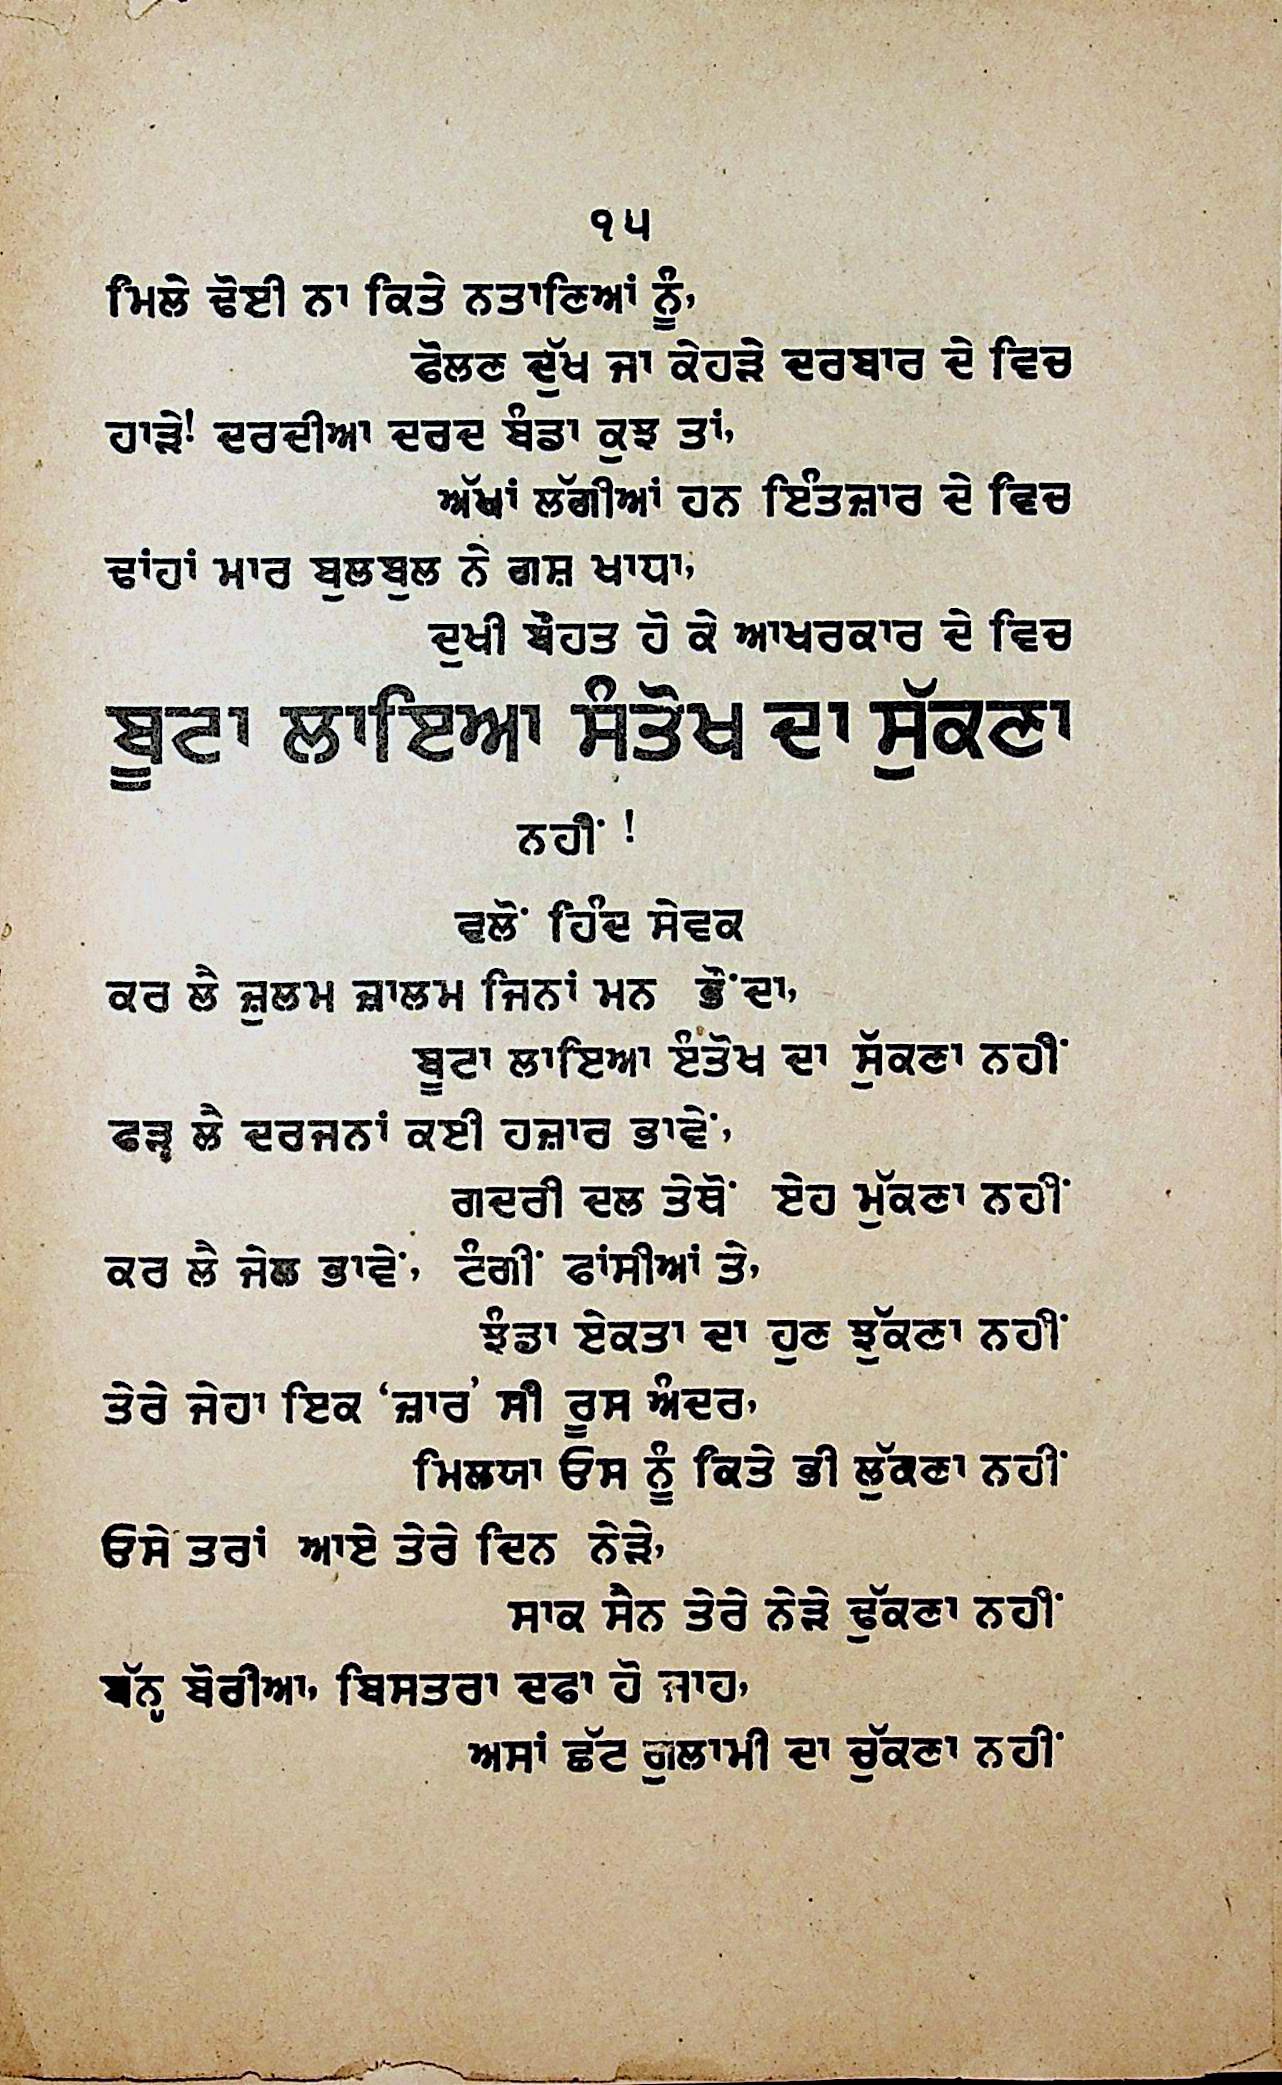 ੧੫
ਮਿਲੇ ਢੋਈ ਨਾ ਕਿਤੇ ਨਤਾਣਿਆਂ ਨੂੰ,
ਫੋਲਣ ਦੁੱਖ ਜਾ ਕੇਹੜੇ ਦਰਬਾਰ ਦੇ ਵਿਚ
ਹਾੜੇ! ਦਰਦੀਆ ਦਰਦ ਬੰਡਾ ਕੁਝ ਤਾਂ,
ਅੱਖਾਂ ਲੱਗੀਆਂ ਹਨ ਇੰਤਜ਼ਾਰ ਦੇ ਵਿਚ
ਢਾਂਹਾਂ ਮਾਰ ਬੁਲਬੁਲ ਨੇ ਗਸ਼ ਖਾਧਾ,
ਦੁਖੀ ਬੌਹਤ ਹੋ ਕੇ ਆਖਰਕਾਰ ਦੇ ਵਿਚ
ਬੂਟਾ ਲਾਇਆ ਸੰਤੋਖ ਦਾ ਸੁੱਕਣਾ
ਨਹੀਂ !
ਵਲੋਂ ਹਿੰਦ ਸੇਵਕ
ਕਰ ਲੈ ਜ਼ੁਲਮ ਜ਼ਾਲਮ ਜਿਨਾਂ ਮਨ ਭੌਂਦਾ,
ਬੂਟਾ ਲਾਇਆ ਏੰਤੋਖ ਦਾ ਸੁੱਕਣਾ ਨਹੀਂ
ਫੜ੍ਹ ਲੈ ਦਰਜਨਾਂ ਕਈ ਹਜ਼ਾਰ ਭਾਵੇਂ,
ਗਦਰੀ ਦਲ ਤੇਥੋਂ ਏਹ ਮੁੱਕਣਾ ਨਹੀਂ
ਕਰ ਲੈ ਜੇਲ ਭਾਵੇਂ, ਟੰਗੀਂ ਫਾਂਸੀਆਂ ਤੇ,
ਝੰਡਾ ਏਕਤਾ ਦਾ ਹੁਣ ਝੁੱਕਣਾ ਨਹੀਂ
ਤੇਰੇ ਜੇਹਾ ਇਕ ‘ਜ਼ਾਰ’ ਸੀ ਰੂਸ ਅੰਦਰ,
ਮਿਲਯਾ ਓਸ ਨੂੰ ਕਿਤੇ ਭੀ ਲੁੱਕਣਾ ਨਹੀਂ
ਓਸੇ ਤਰਾਂ ਆਏ ਤੇਰੇ ਦਿਨ ਨੇੜੇ,
ਸਾਕ ਸੈਨ ਤੇਰੇ ਨੇੜੇ ਢੁੱਕਣਾ ਨਹੀਂ
ਬੱਨ੍ਹ ਬੋਰੀਆ, ਬਿਸਤਰਾ ਦਫਾ ਹੋ ਜਾਹ,
ਅਸਾਂ ਛੱਟ ਗੁਲਾਮੀ ਦਾ ਚੁੱਕਣਾ ਨਹੀਂ